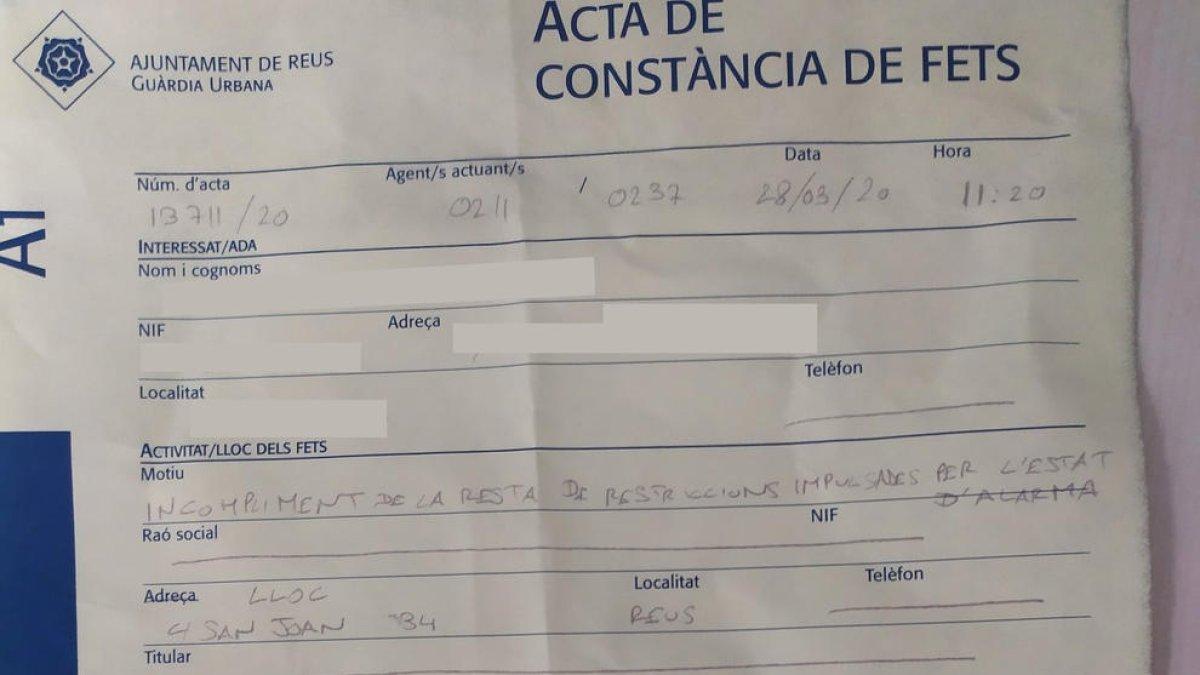 ACTA DE
CONSTÀNCIA DE FETS
AJUNTAMENT DE REUS
GUÀRDIA URBANA
A1
Núm. d'acta Agent/s actuant/s Data Hora
13711/20 0211 / 0237 28/03/20 11:20
INTERESSAT/ADA
Nom i cognoms
NIF Adreça
Localitat Telèfon
ACTIVITAT/LLOC DELS FETS
Motiu
INCOMPLIMENT DE LA RESTA DE RESTRICCIONS IMPULSADES PER L'ESTAT
D'ALARMA
Raó social NIF
Adreça LLOC Localitat Telèfon
SAN JOAN 34 REUS
Titular